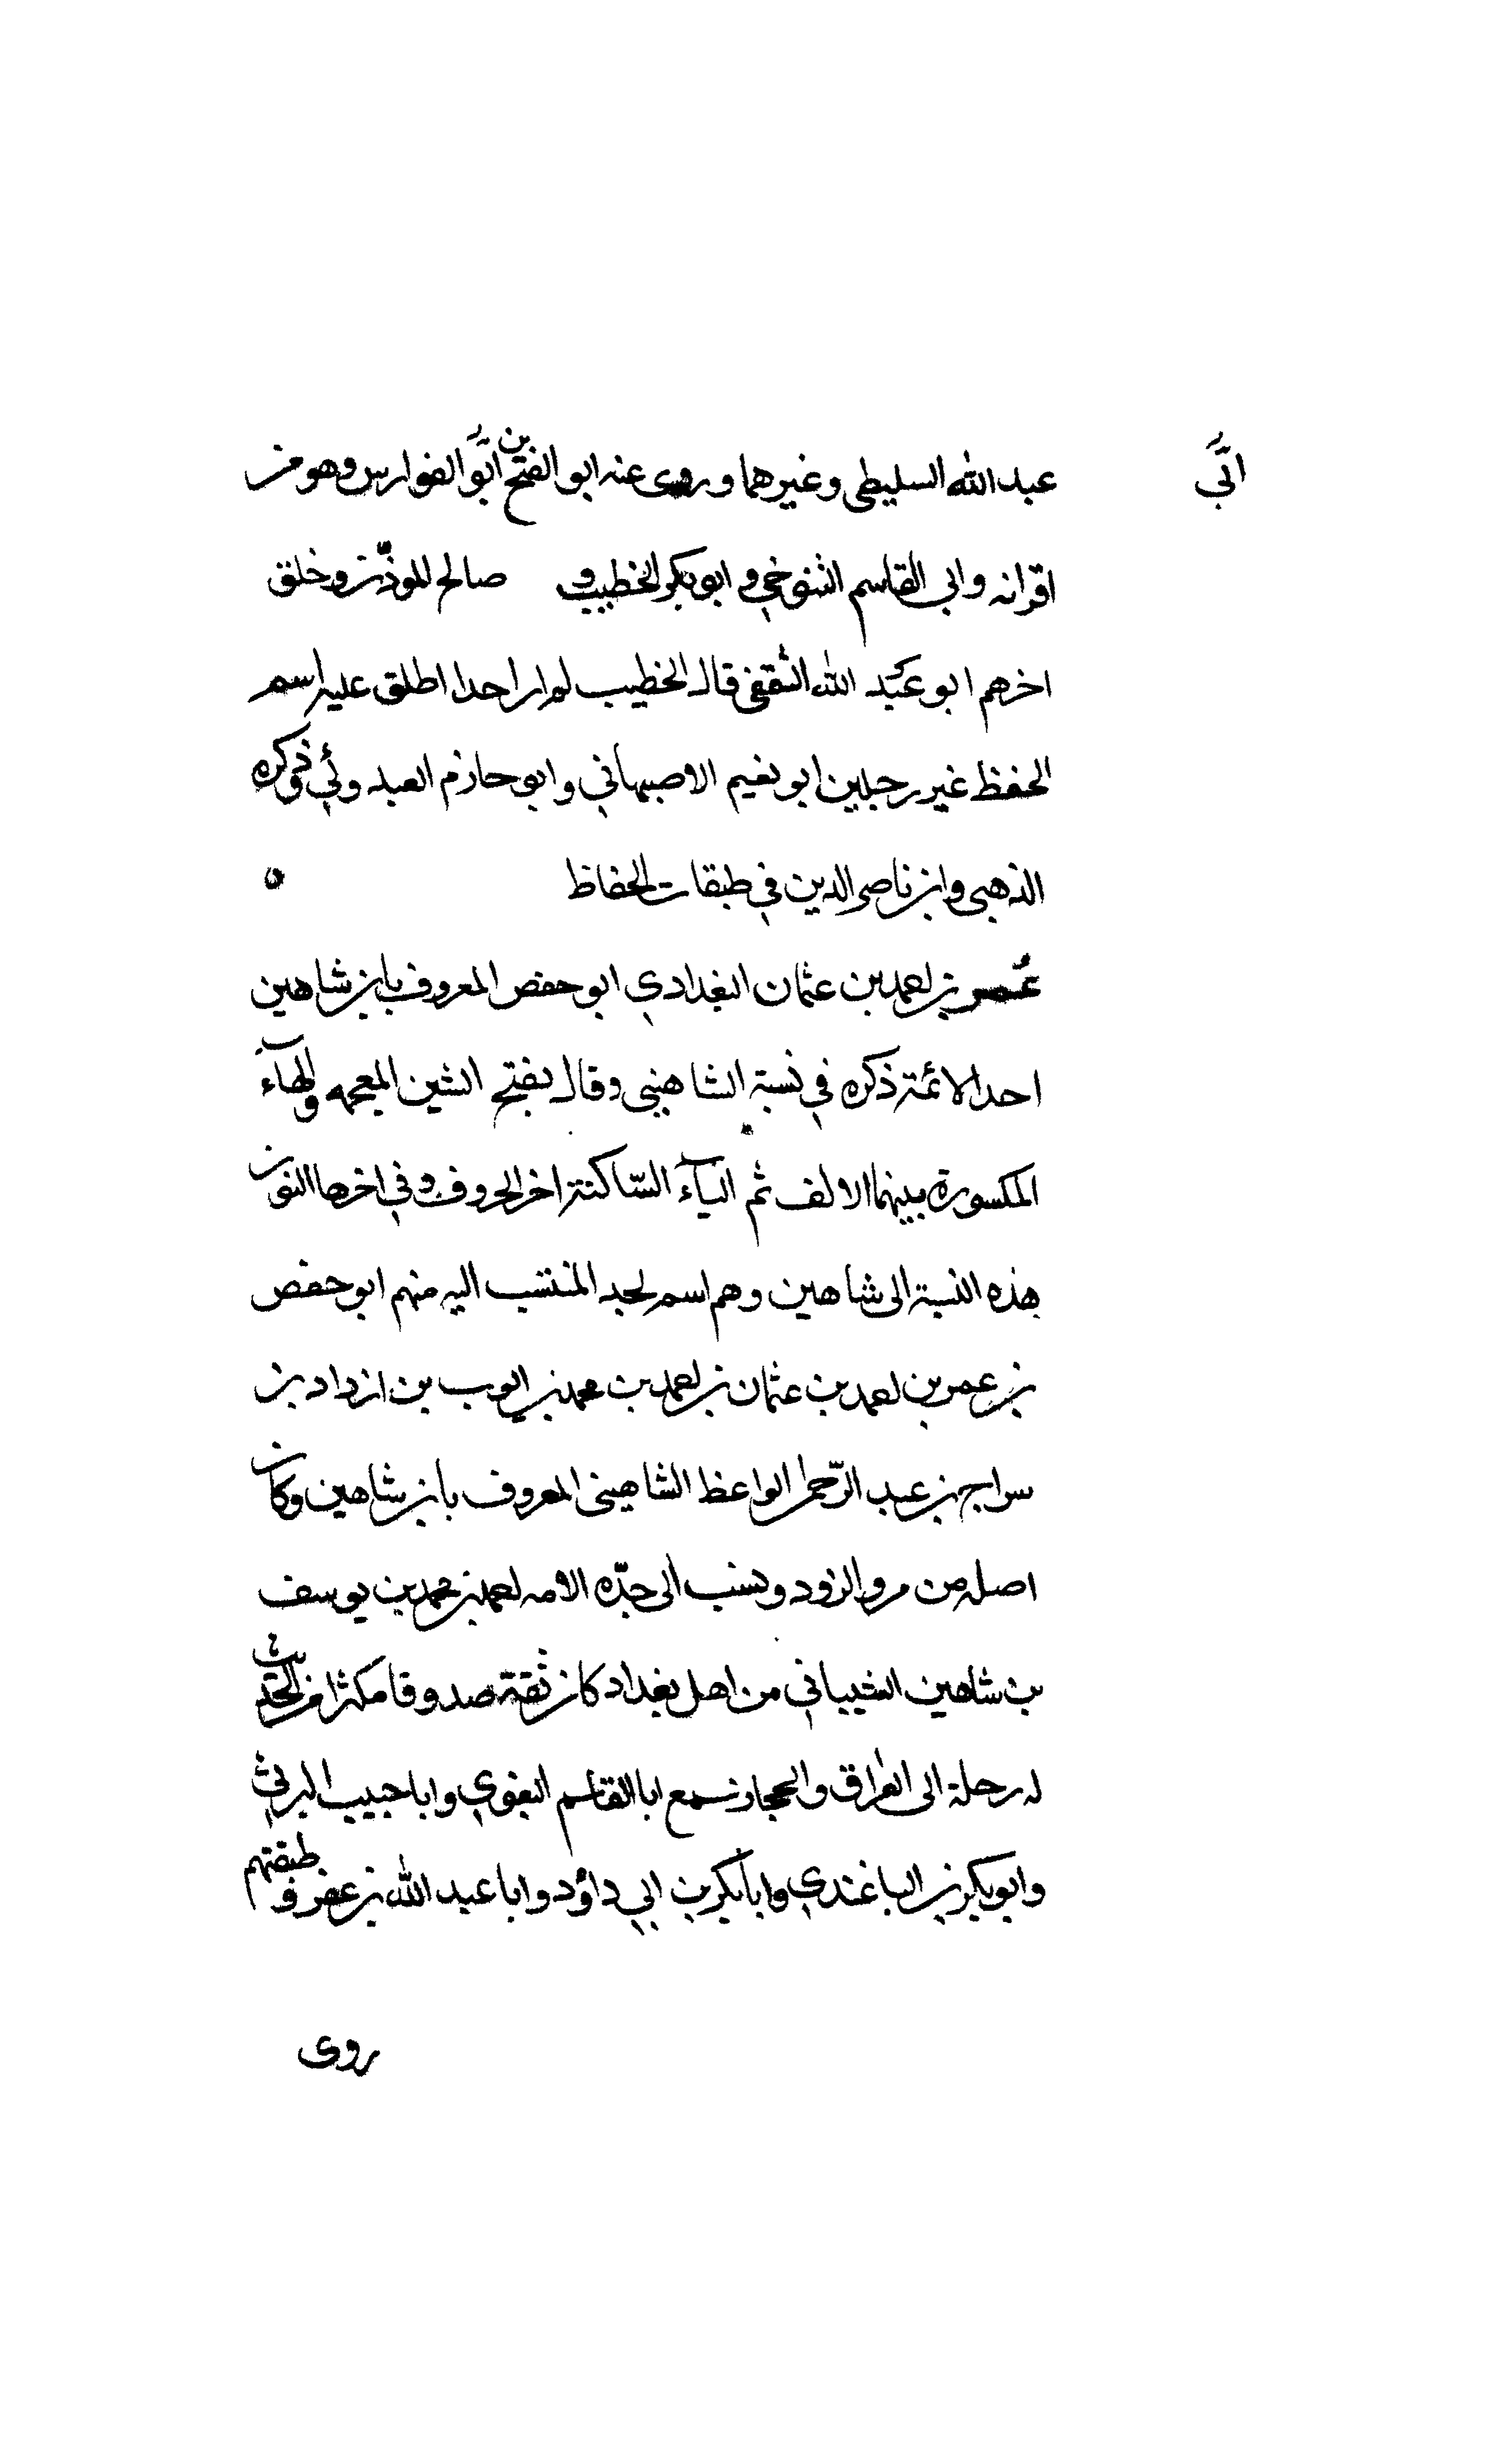 ابي
عبد الله السليطي وغيرهما وروى عنه ابو الفتح بن ابو الفوارس وهو من
اقرانه وابي القاسم التنوخي و ابو بكر الخطيب و صالح المؤذن وخلق
اخرهم ابو عبد الله الثقفي قال الخطيب لم ار احدا اطلق عليه اسم
الحفظ غير رجلين ابو نعيم الاصبهاني وابو حازم العبدوئي وذكره
الذهبي وابن ناصر الدين في طبقات الحفاظ ه
عمر بن احمد بن عثمان البغدادي ابو حفص المعروف بابن شاهين
احد الائمة ذكره في نسبة الشاهيني وقال بفتح الشين المعجمه والهاء
المكسورة بينهما الالف ثم الياء الساكنة اخر الحروف وفي اخرها النون
هذه النسبة الى شاهين وهم اسم لجد المنتسب اليه منهم ابو حفص
بن عمر بن احمد بن عثمان بن احمد بن محمد بن ايوب بن ازداد بن
سراج بن عبد الرحمن الواعظ الشاهيني المعروف بابن شاهين وكان
اصله من مرو الرود ونسب الى جده الامه احمد بن محمد بن يوسف
بن شاهين الشيباني من اهل بغداد كان ثقة صدوقا مكثرا من الحديث
له رحلة الى العراق والحجاز سمع ابا القاسم البغوي وابا حبيب البرتي
وابو بكر بن الباغندي وابا بكر بن ابي داؤد وابا عبد الله بن عفر وطبقتهم
روى